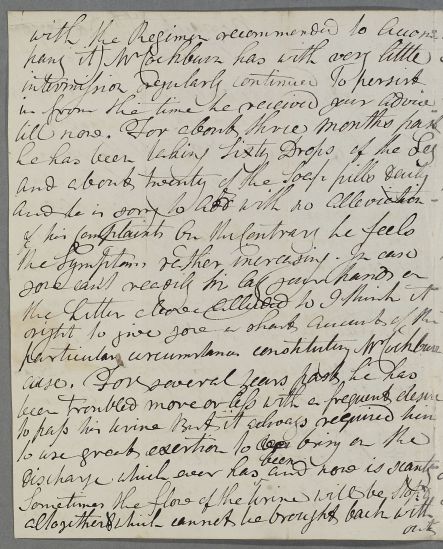 with the Regimen recommended to accom
pany it Mr Cockburn has with very little
intermission regularly continued to persist
in from the time he received your advice
till now. For about three months past
he has been taking Sixty Drops of the
and about twenty of the Soap pills daily
and he is sorry to add with no alleviation
of his complaints On the Contrary he feels
the Symptoms rather increasing. In case
you can't readily your hands on
the Letter above alluded to I think it
right to give you a short account of the
particular circumstances constituting Mr Cockburn
case. For several years past he has
been troubled more or less with a frequent desire
to pass his Urine But it always required him
to use great exertion to bring on the
discharge which ever has been and now is scanty
Sometimes the flow of the Urine will be stop'd
altogether which cannot be brought back with
out